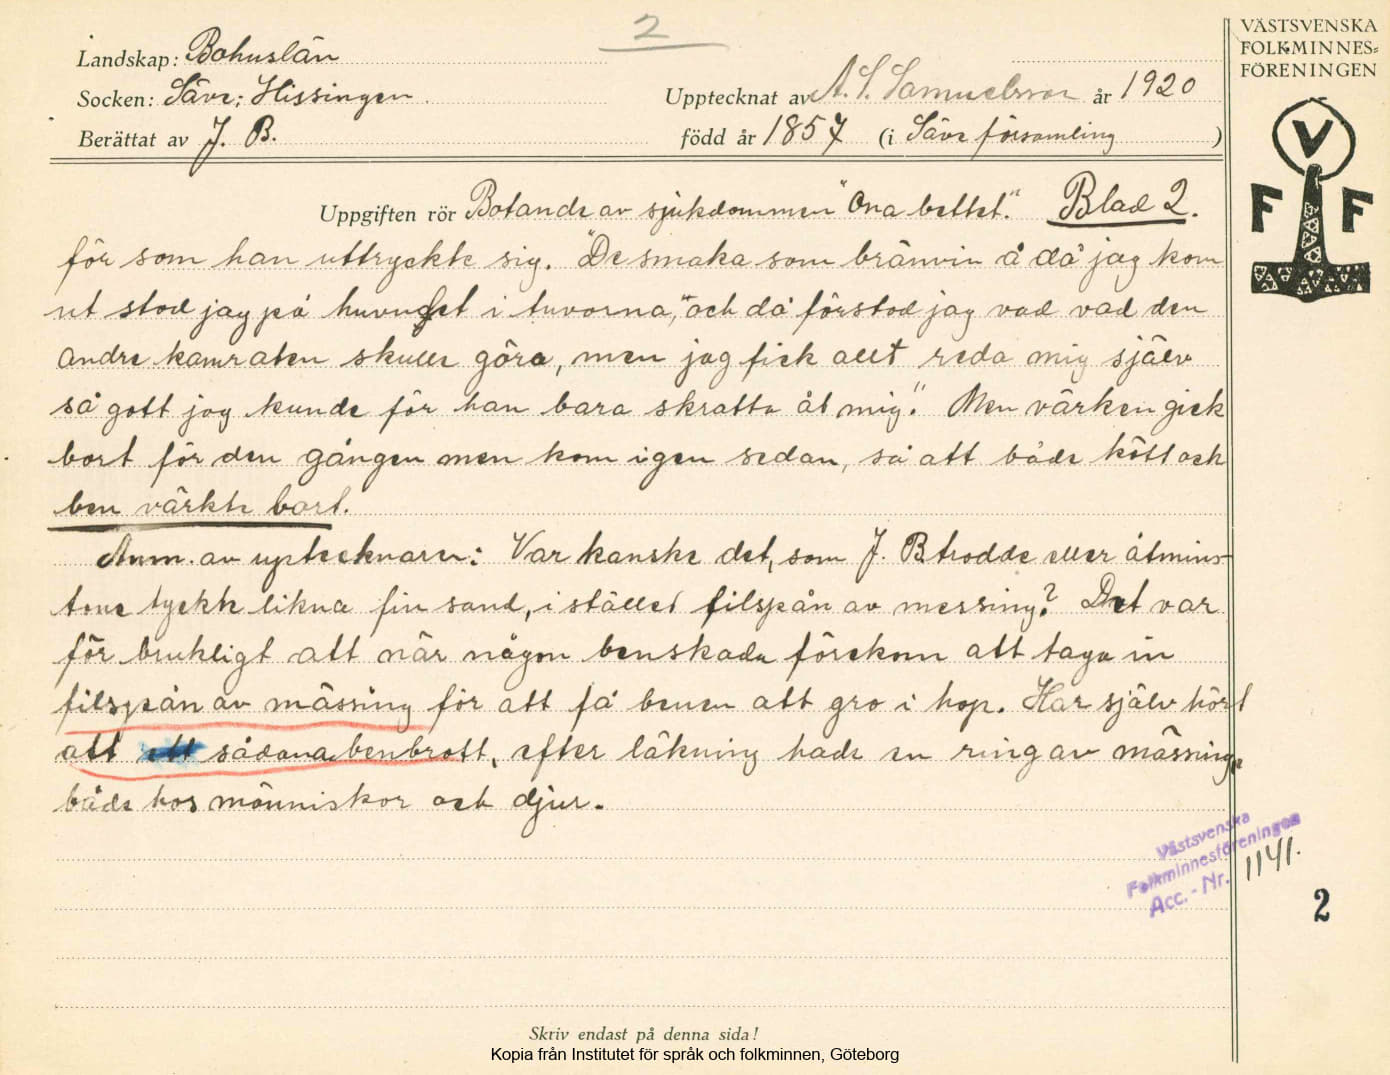 2
VÄSTSVENSKA
FOLKMINNES=
FÖRENINGEN
Landskap: Bohuslän
Socken: Säve; Hissingen
Upptecknat av A. S. Samuelsson år 1920
Berättat av J. B.
född år 1857 (i Säve församling)
V
F F
Uppgiften rör Botande av sjukdommen "Ona bettet." Blad 2.
för som han uttryckte sig. "De smaka som bränvin å då jag kom
ut stod jag på huvudet i tuvorna," och då förstod jag vad vad den
andre kamraten skulle göra, men jag fick allt reda mig själv
så gott jag kunde för han bara skratta åt mig." Men värken gick
bort för den gången men kom igen sedan, så att både kött och
ben värkte bort.
Anm. av upteeknaren: Var kanske det, som J. B. trodde eller åtmins-
tone tyckte likna fin sand, i stället filspån av messing? Det var
för brukligt att när någon benskada förekom att taga in
filspån av mässing för att få benen att gro i hop. Har själv hört
att ett sådana benbrott, efter läkning hade en ring av mässing,
både hos människor och djur.
Västsvenska
Folkminnesföreningen
Acc. - Nr. 1141.
2
Skriv endast på denna sida!
Kopia från Institutet för språk och folkminnen, Göteborg